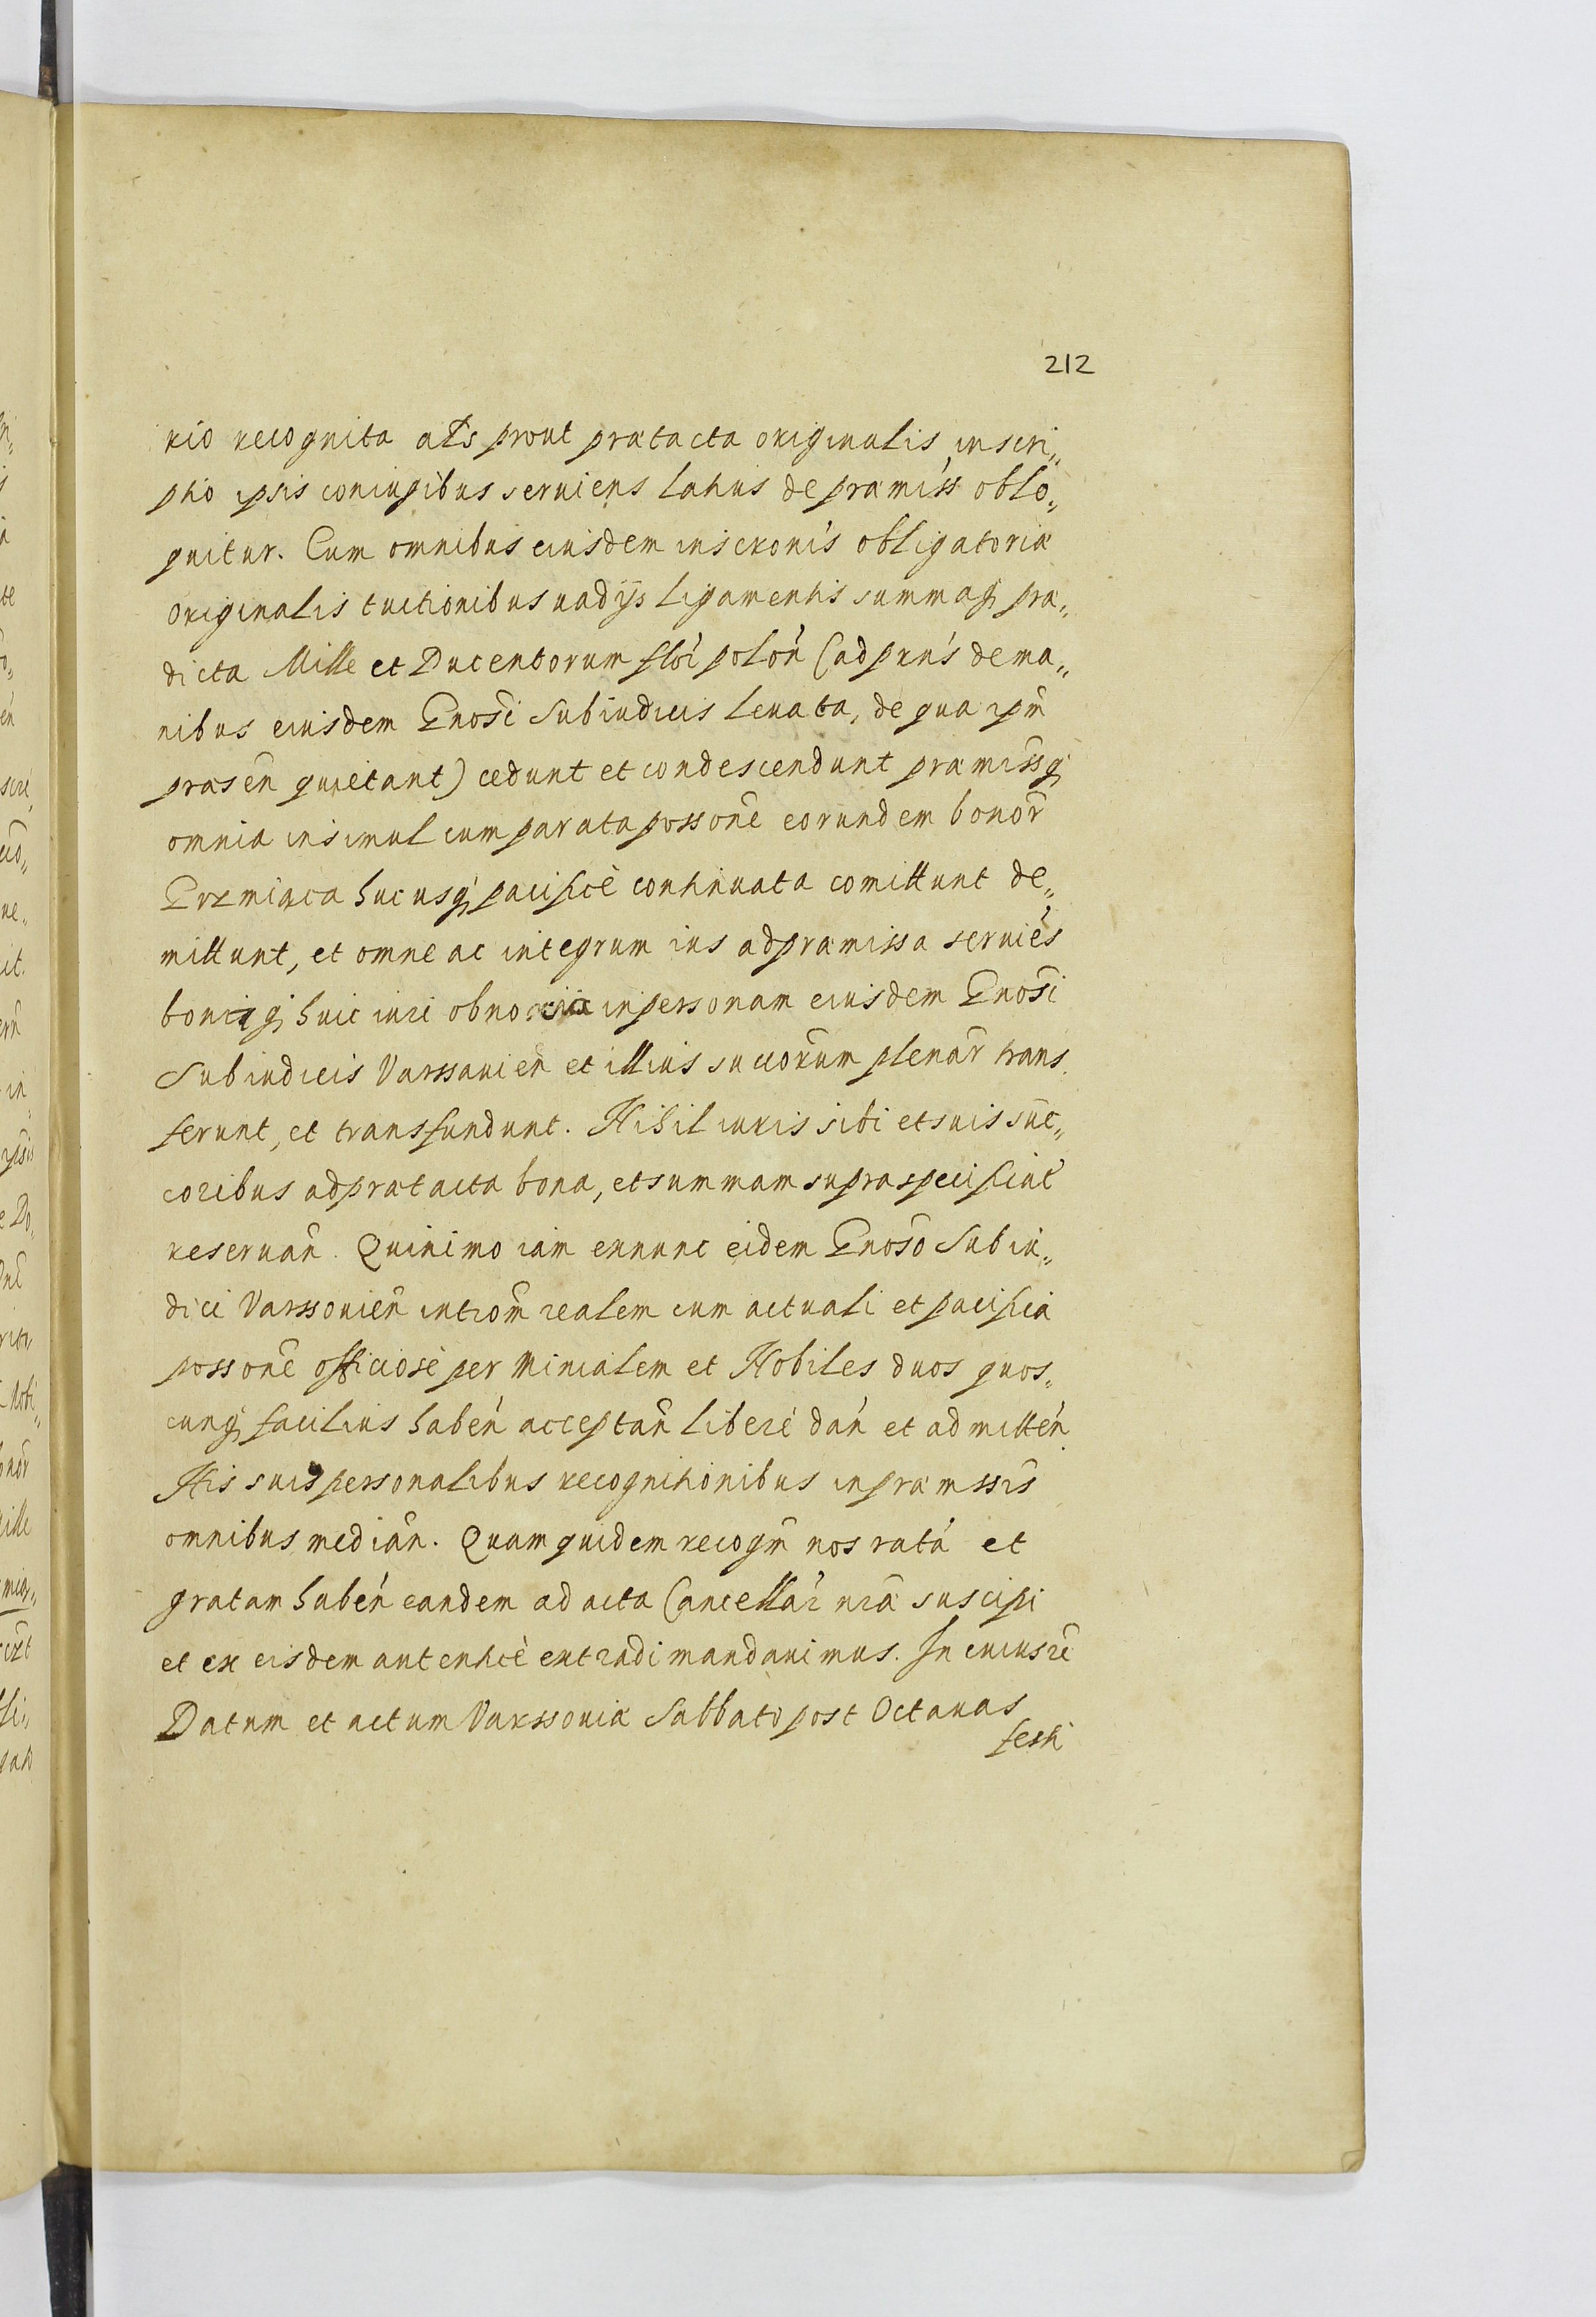 212
rio recognita als prout prætacta originalis inscri„
ptio ipsis coniugibus seruiens latius de præmiss oblo„
quitur. Cum omnibus eiusdem inscronis obligatoriæ
originalis tuitionibus uadijs ligamentis summaq præ„
dicta Mille et Ducentorum flor polon (ad pnns de ma„
nibus eiusdem Gnosi Subiudicis leuata, de qua ipm
præsen quietant) cedunt et condescendunt præmissq
omnia insimul cum parata possone eorundem bonor
hucusq pacifice continuata comittunt de„
mittunt, et omne ac integrum ius ad præmissa seruies
bonisq huic iuri obnoxiis in personam eiusdem Gnosi
Subiudicis Varssauien et illius succorum plenar trans
ferunt, et transfundunt. Nihil iuris sibi et suis suc„
coribus ad prætacta bona, et summam supraspecificat
reseruan. Quinimo iam exnunc eidem Gnoso Subiu„
dici Varssouien introm realem cum actuali et pacifica
possone officiose per Minialem et Nobiles duos quos„
cunq facilius haben acceptan libere dan et admitten
His suis personalibus recognitionibus in præmssis
omnibus median. Quam quidem recogm nos rata et
gratam haben eandem ad acta Cancellar nra suscipi
et ex eisdem autentice extradi mandauimus. In cuius re
Datum et actum Varssouiæ Sabbato post Octauas
festi